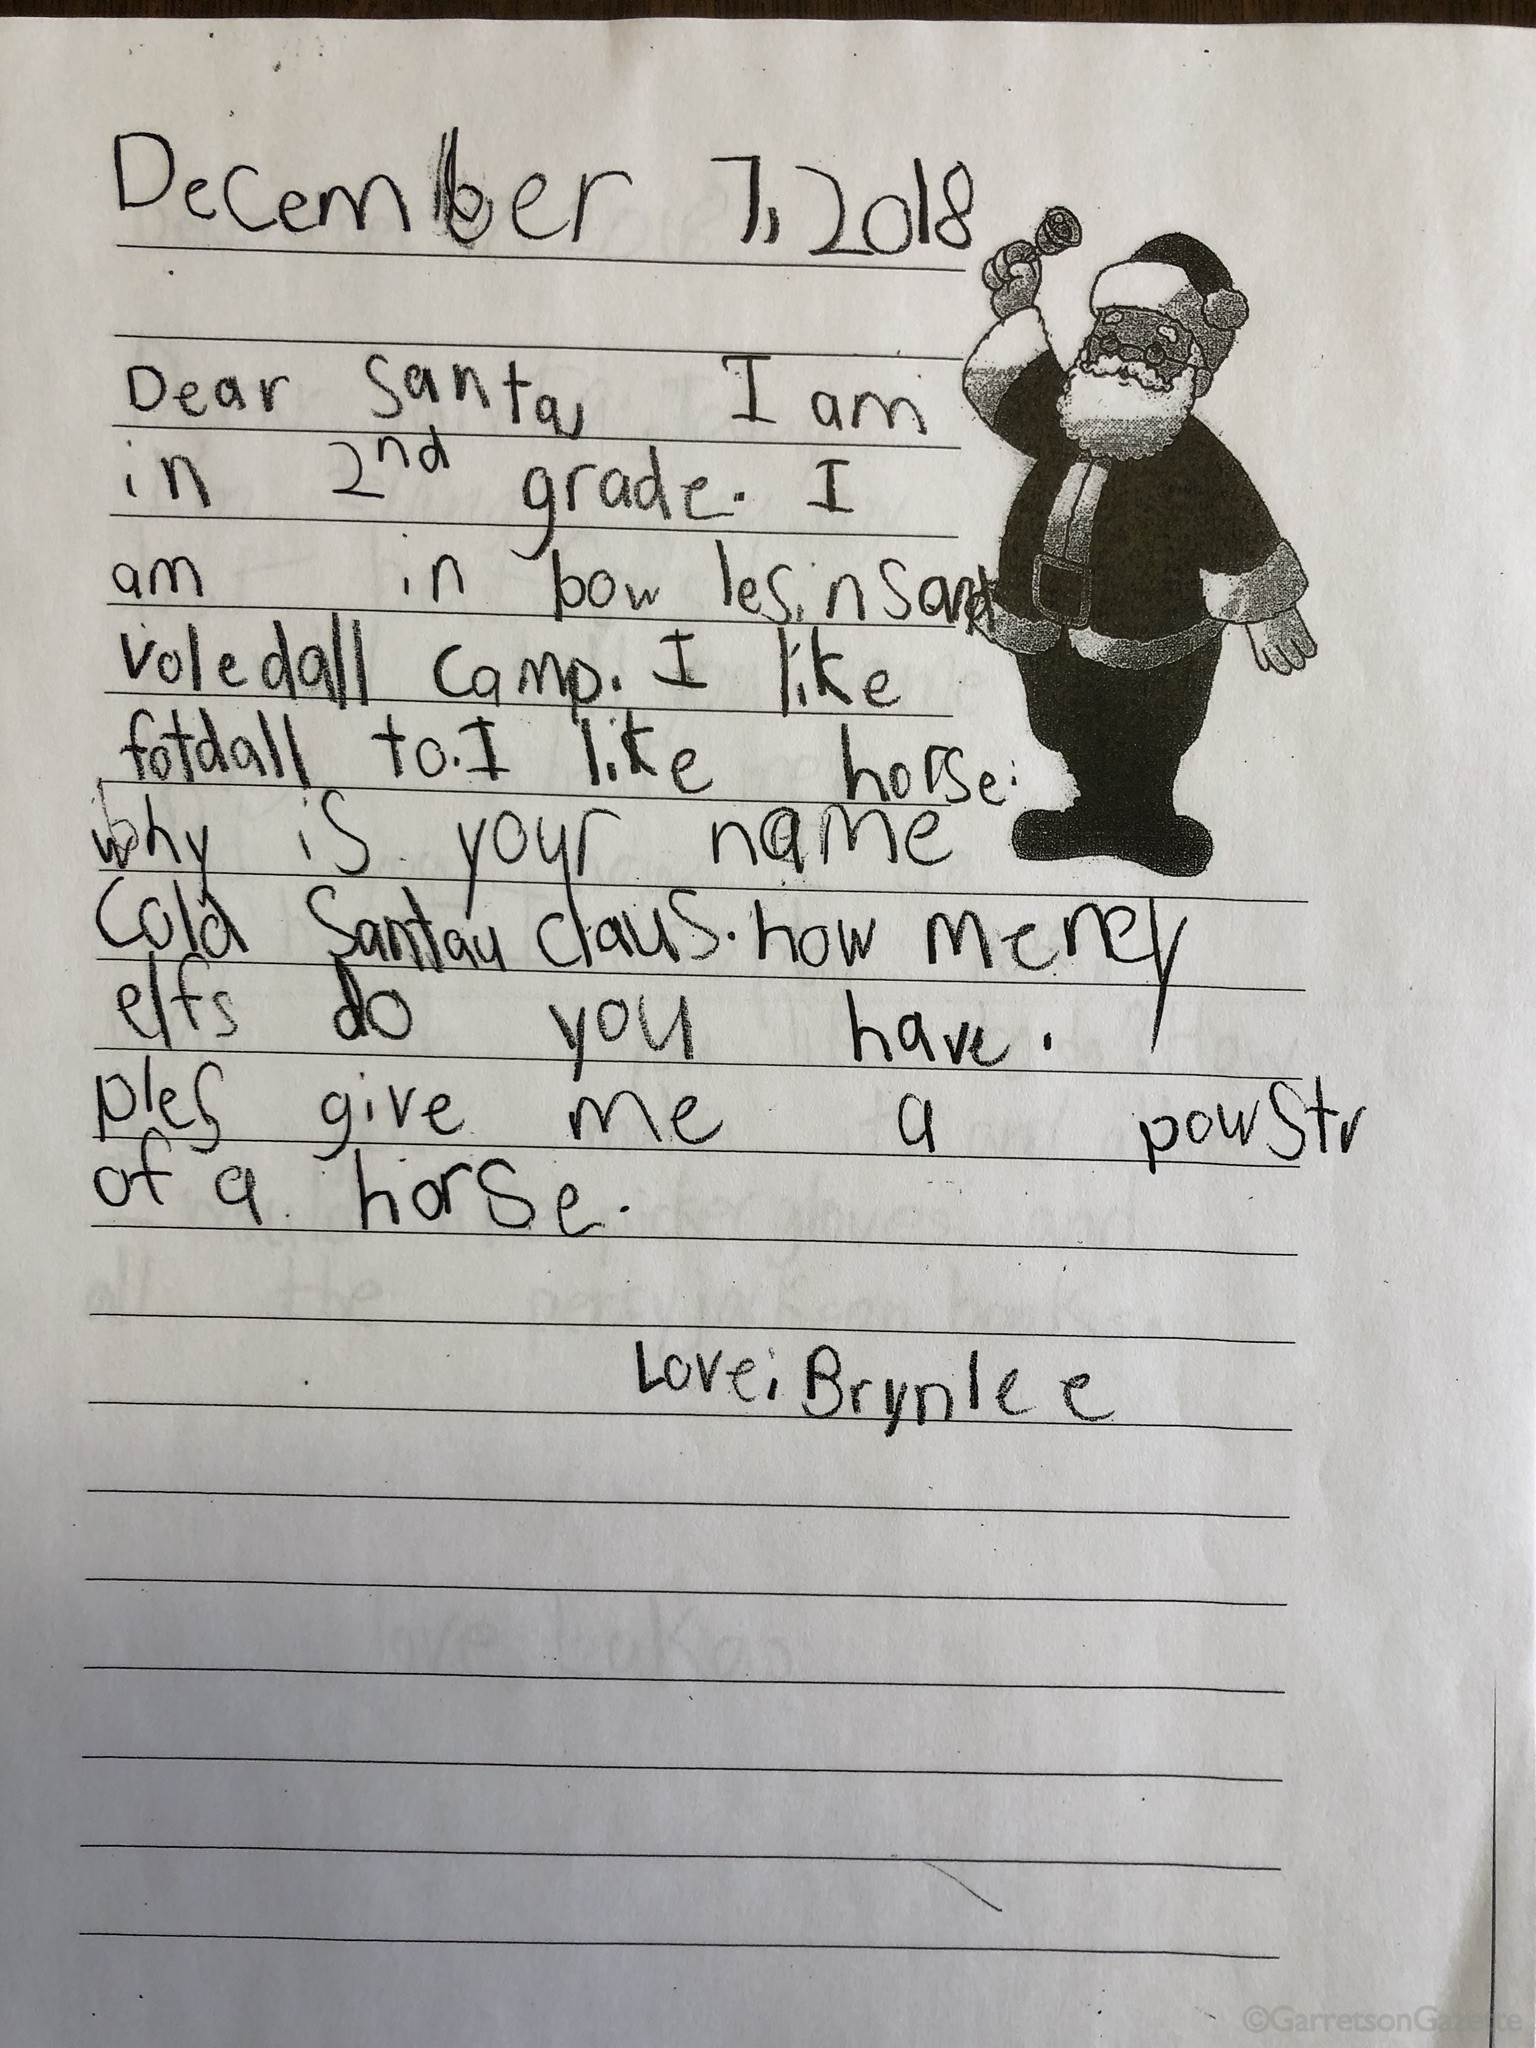 December 7, 2018
Dear Santa, I am
in 2nd grade. I
am in bow lesin sand
voledall camp. I like
fotdall to. I like horse.
why is your name
Cold Santau claus. how meney
elfs do you have.
ples give me a powstr
of a horse.
Love, Brynlee
©GarretsonGazette